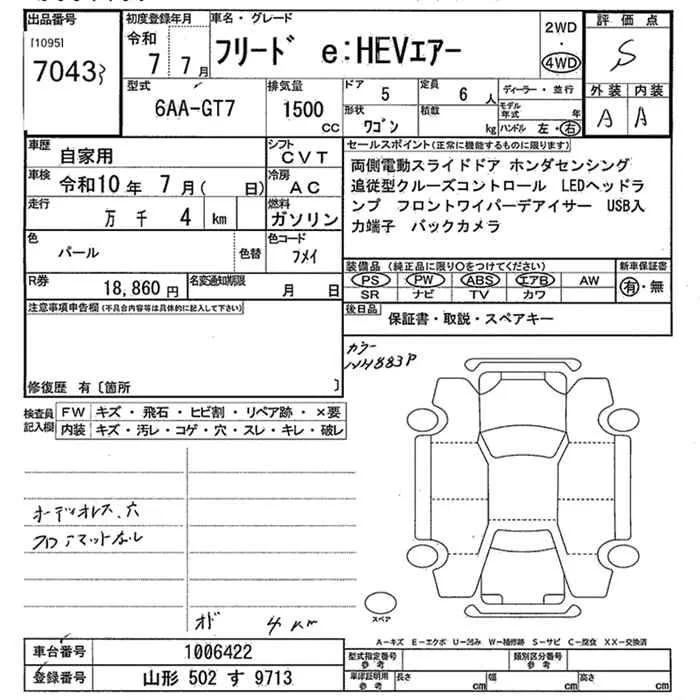 出品番号
[1095]
7043
初度登録年月
令和
7 7月
車名・グレード
フリード e:HEVエアー
2WD
・
4WD
評価点
S
外装 内装
A A
型式
6AA-GT7
排気量
1500
cc
ドア
5
定員
6 人
形状
ワゴン
積載
kg
ディーラー・並行
モデル年式 年
ハンドル 左・右
車歴
自家用
シフト
CVT
車検
令和10年 7月( 日)
冷房
AC
走行
万 千 4 km
燃料
ガソリン
色
パール
色替
色コード
フメイ
R券
18,860円
名変通知期限
月 日
セールスポイント(正常に機能するものに限ります)
両側電動スライドドア ホンダセンシング
追従型クルーズコントロール LEDヘッドラ
ンプ フロントワイパーデアイサー USB入
力端子 バックカメラ
装備品(純正品に限り○をつけてください)
PS PW ABS エアB AW
SR ナビ TV カワ
新車保証書
有・無
後日品
保証書・取説・スペアキー
注意事項申告欄(不具合内容等は具体的に記入して下さい)
修復歴 有〔箇所 〕
カラー
NH883P
検査員
記入欄
FW キズ・飛石・ヒビ割・リペア跡・×要
内装 キズ・汚レ・コゲ・穴・スレ・キレ・破レ
オーディオレス、穴
フロアマットなし
オド 4km
スペア
A-キズ E-エクボ U-凹み W-補修跡 S-サビ C-腐食 XX-交換済
車台番号
1006422
登録番号
山形 502 す 9713
型式指定番号
参考
類別区分番号
参考
車庫証明用
参考
長さ cm
幅 cm
高さ cm